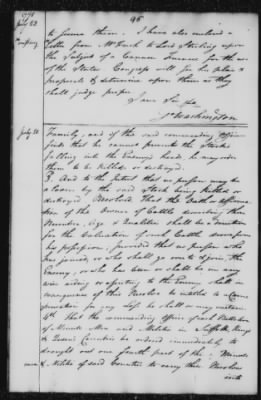 96
1776
July 22
to secure them. I have also enclosed a
Letter from Mr Faesh to Lord Stirling upon
the Subject of a Cannon Furnace for the use
of the States Congress will for his plan &
proposals & determine upon them as they
shall judge proper
I am Sir &ca
Go Washington
July 20
Family, and if the said commanding Officer
finds that he cannot prevent the Stock
falling into the Enemys hands he may order
them to be killed or destroyed.
3. And to the Intent that no person may be
a loser by the said Stock being killed or
destroyed Resolved That the Oath or Affirma-
tion of the Owner of Cattle describing their
Number, Age & Qualities shall be a
for the Valuation of such Cattle driven from
his possession; provided that no person who
has joined, or who shall go over to & join the
Enemy; or who has been or shall be in any
wise aiding or assisting to the Enemy shall in
consequence of this Resolve be entitled to
for any Loss he shall or may sustain.
4th That the commanding Officer of each Battalion
of Minute Men and Militia in Suffolk, Kings
& Queens Counties be ordered immediately to
draught out one fourth part of the Minute
Men & Militia of said Counties to carry these Resolves
into